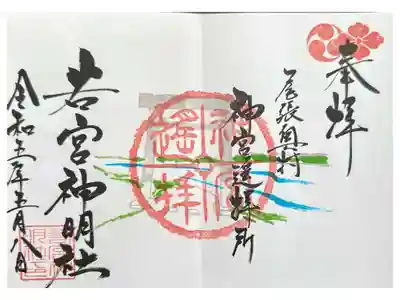 奉拝
尾張奥村
神宮遥拝所
若宮神明社
令和五年五月八日